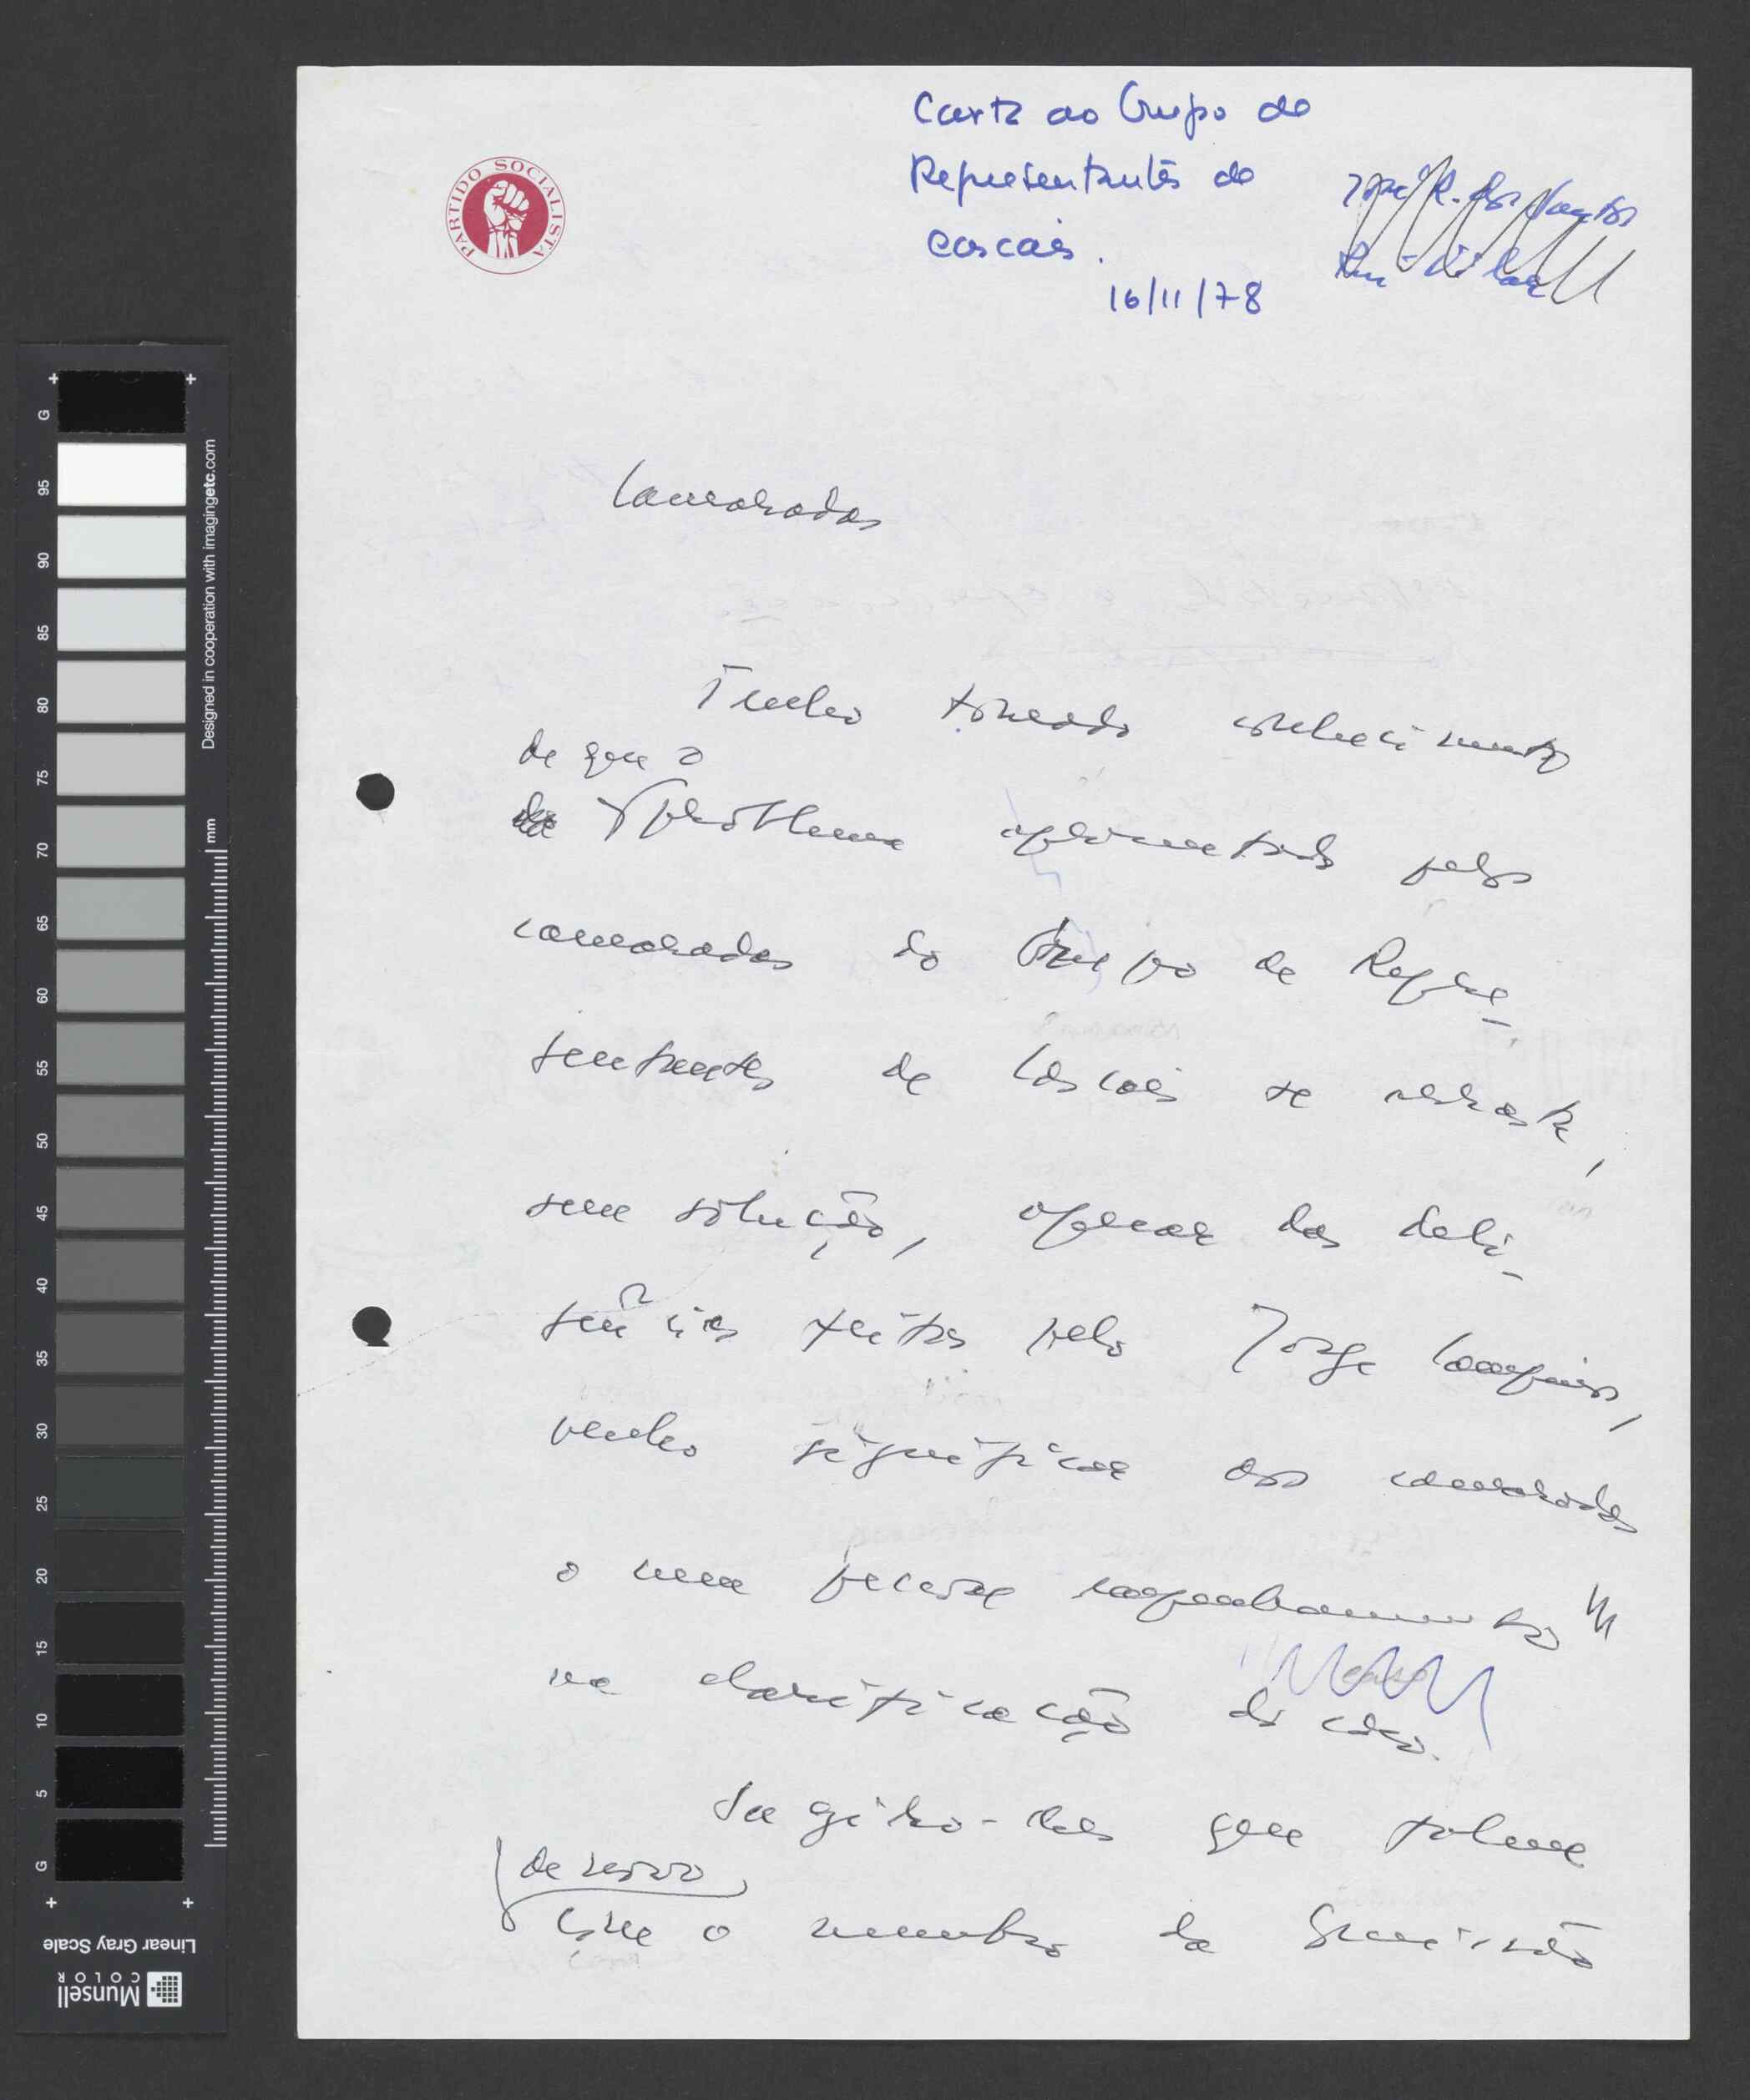 PARTIDO SOCIALISTA
Carta ao Grupo de
Representantes de
Cascais.
16/11/78
José R. dos Santos
Rui Vilar
Camaradas
Tendo tomado conhecimento
de que o
problema apresentado pelos
camaradas do Grupo de Repre-
sentantes de Cascais se arrasta,
sem solução, apesar das deli-
gências feitas pelo Jorge Campinos,
venho significar aos camaradas
o meu empenhamento
na clarificação do caso.
Sugiro-lhes que falem
de novo
com o membro da Comissão
G 95 90 85 80 75 70 65 60 55 50 45 40 35 30 25 20 15 10 5 G
Designed in cooperation with imagingetc.com
mm
Linear Gray Scale
Munsell
COLOR